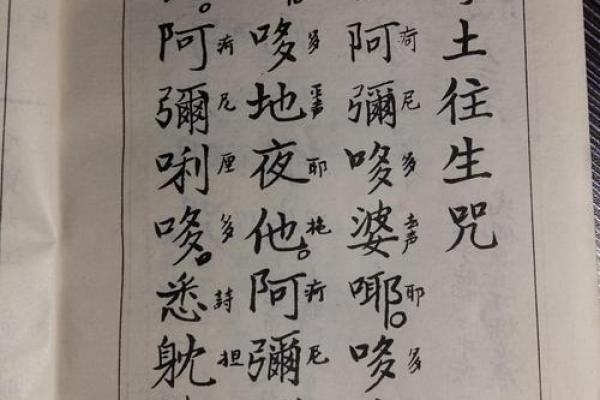 土往生咒
疴尼多去声耶多
阿彌哆婆㖿。哆
多耶拖疴尼
哆地夜他。阿彌
疴尼厘多詩担
阿彌唎哆。悉躭